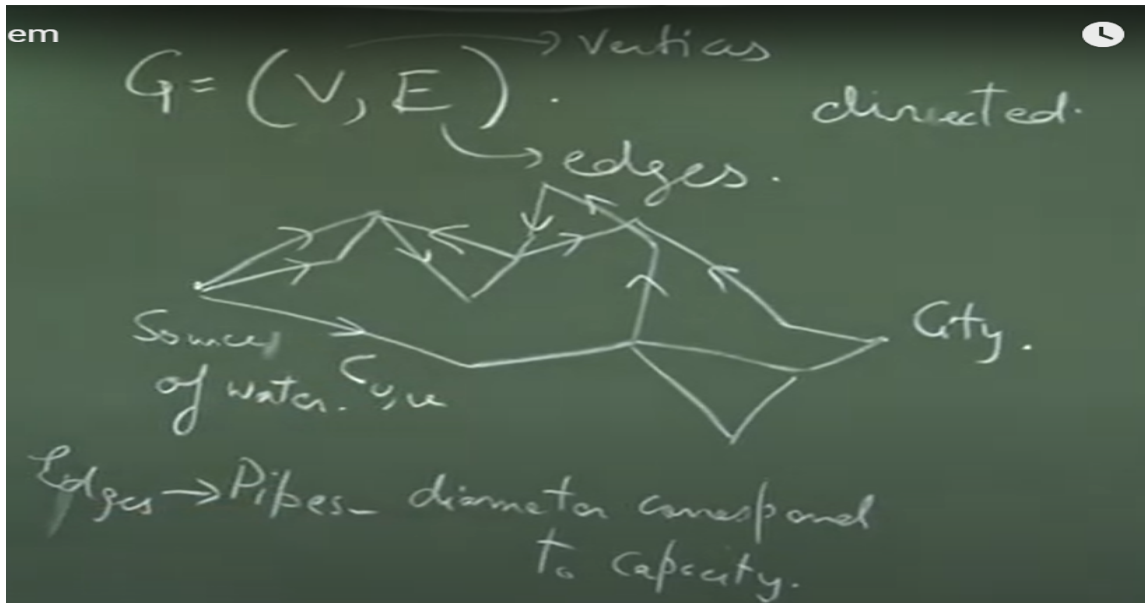 em
→ Vertices
G = (V, E).
directed.
→ edges.
City.
Source
of water. C u,v
Edges → Pipes - diameter correspond
to capacity.